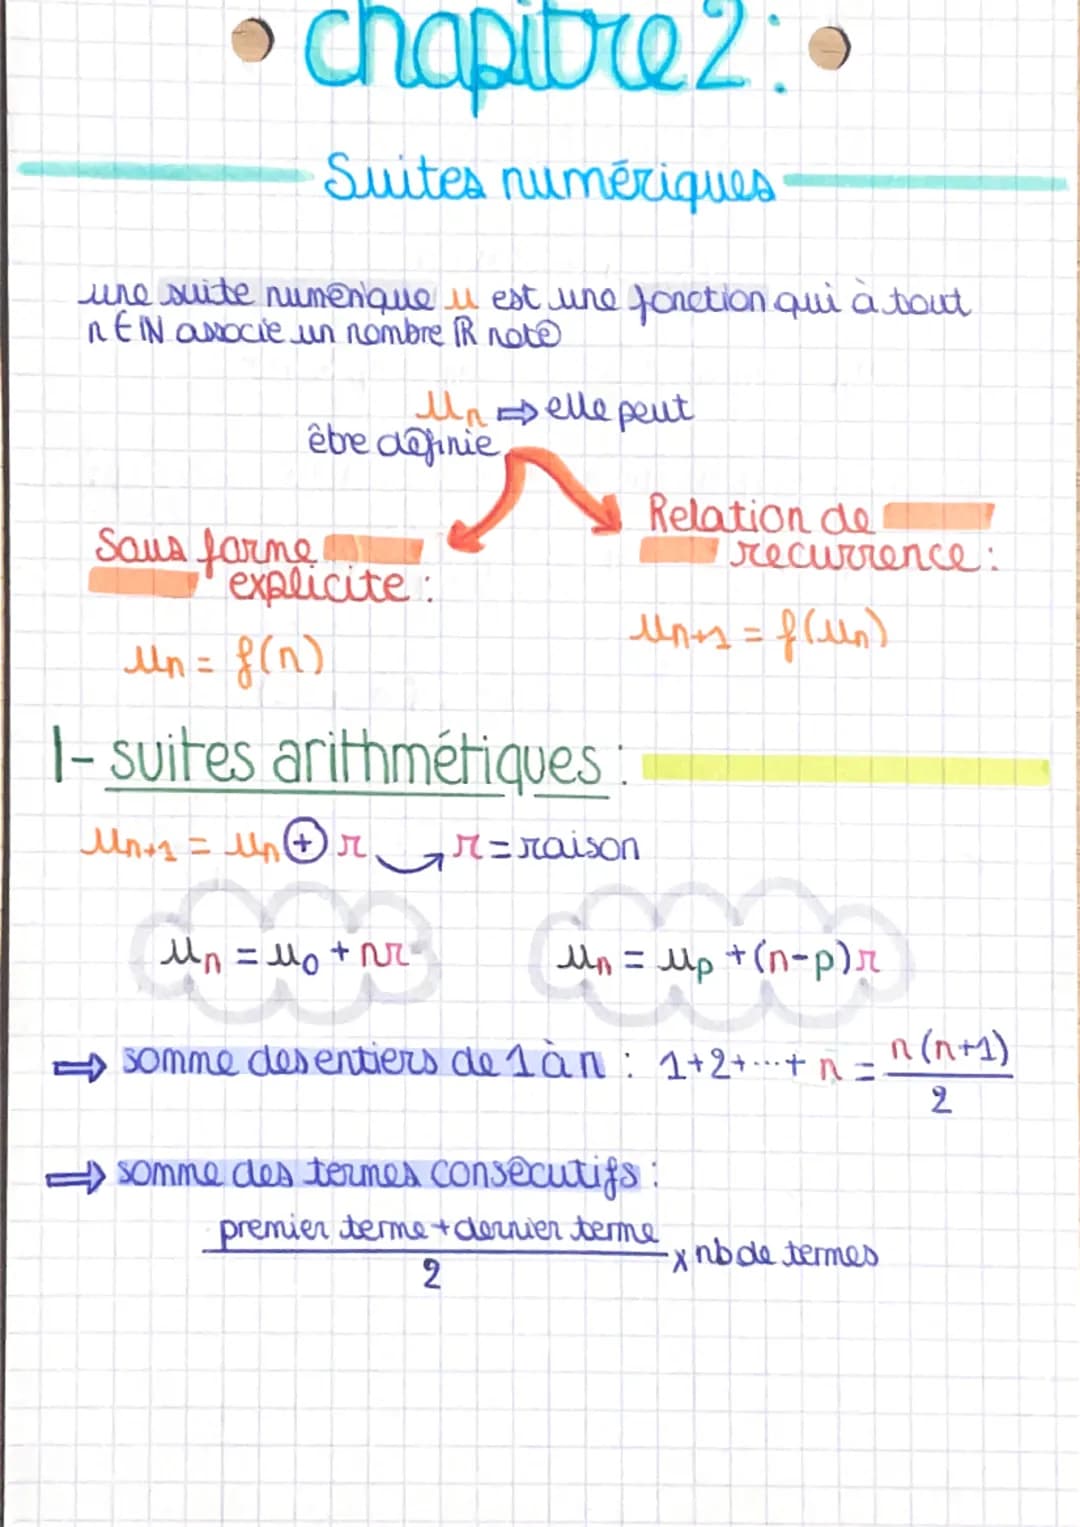 chapitre 2:
Suites numériques
une suite numérique u est une fonction qui à tout
n ∈ ℕ associe un nombre ℝ noté
Un ⇒ elle peut
être définie
Sous forme
explicite :
Un = f(n)
Relation de
recurrence :
Un+1 = f(Un)
1- suites arithmétiques :
Un+1 = Un + r r = raison
Un = U0 + nr
Un = Up + (n-p)r
⇒ somme des entiers de 1 à n : 1+2+...+ n = n(n+1)/2
⇒ somme des termes consécutifs :
premier terme + dernier terme
2
x nb de termes